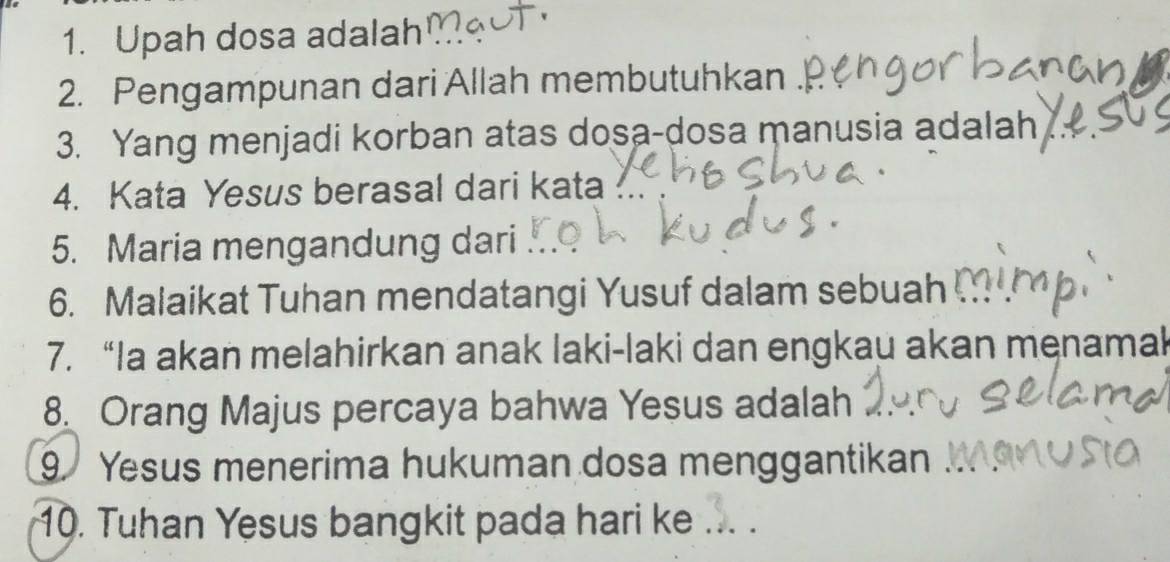 1. Upah dosa adalah ... maut.
2. Pengampunan dari Allah membutuhkan ... pengorbanan
3. Yang menjadi korban atas dosa-dosa manusia adalah ... Yesus
4. Kata Yesus berasal dari kata ... . Yehoshua.
5. Maria mengandung dari ... . roh kudus.
6. Malaikat Tuhan mendatangi Yusuf dalam sebuah ... . mimpi.
7. “Ia akan melahirkan anak laki-laki dan engkau akan menamak
8. Orang Majus percaya bahwa Yesus adalah ... . Juru selamat
9. Yesus menerima hukuman dosa menggantikan ... . manusia
10. Tuhan Yesus bangkit pada hari ke ... . 3